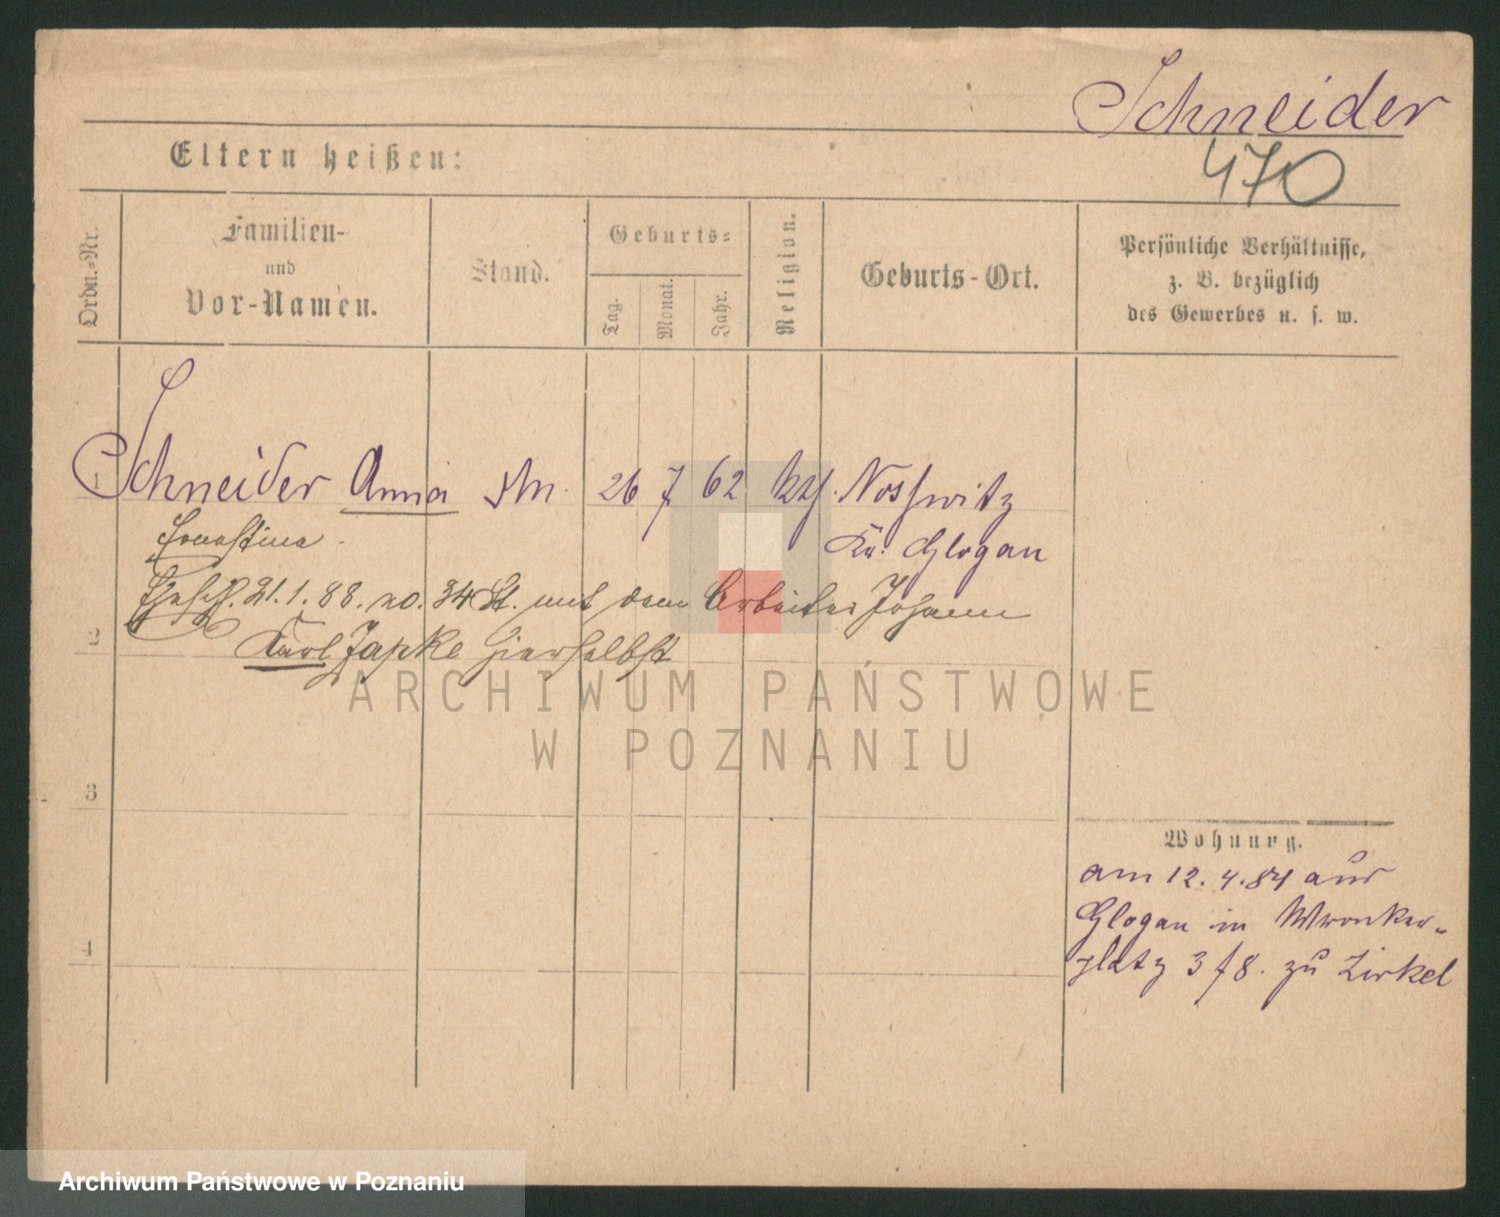 Schneider
470
Eltern heißen:
Ordn.-Nr.
Familien-
und
Vor-Namen.
Stand.
Geburts-
Tag.
Monat.
Jahr.
Religion.
Geburts-Ort.
Persönliche Verhältnisse,
z. B. bezüglich
des Gewerbes u. s. w.
1 Schneider Anna 26 7 62 kth. Nosswitz
Ernestina Kr. Glogau
Ehesch. 21.1.88. no. 34 St. mit dem Arbeiter Johann
2
Karl Japke hierselbst
ARCHIWUM PAŃSTWOWE
W POZNANIU
3
Wohnung.
am 12.4.84 aus
Glogau in Wronker-
4
platz 3 f 8. zu Zirkel
Archiwum Państwowe w Poznaniu